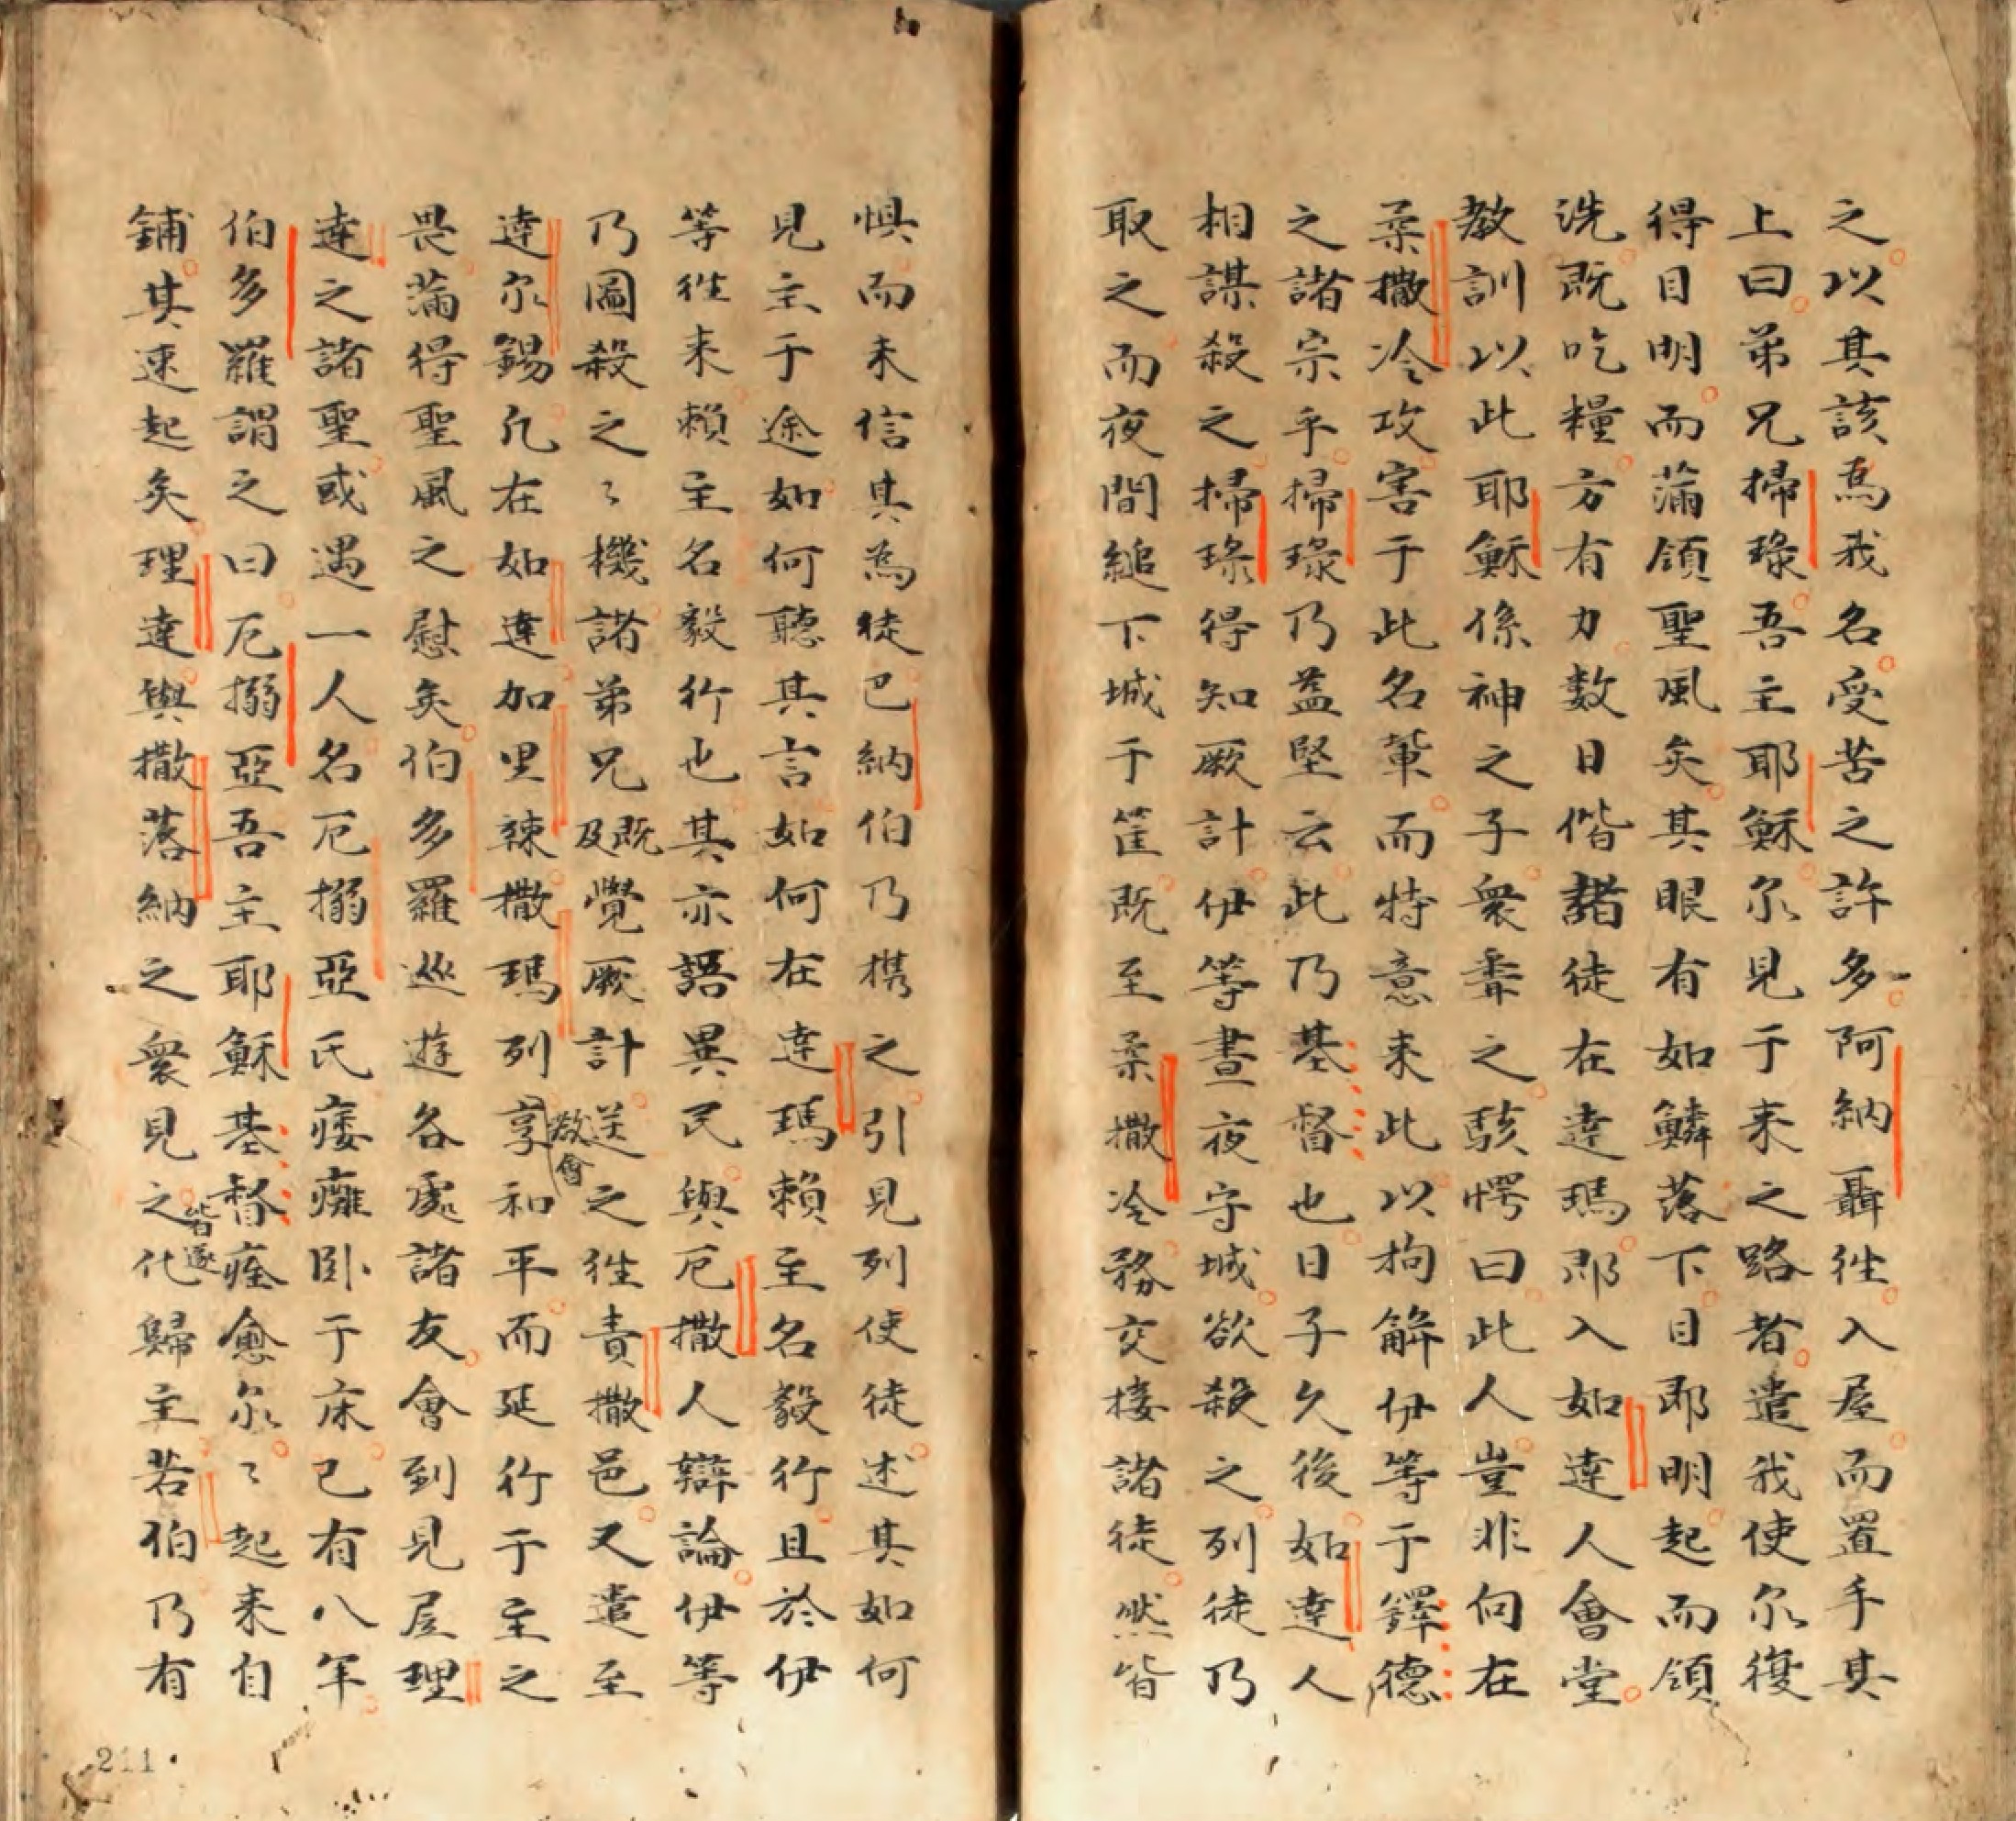 之以其該為我名受苦之許多阿納聶徃入屋而置手其
上曰弟兄掃琭吾主耶穌尔見于来之路者遣我使尔復
得目明而滿領聖風矣其眼有如鱗落下目即明起而領
洗既吃糧方有力数日偕諸徒在達瑪即入如達人會堂
教訓以此耶穌係神之子衆聽之駭愕曰此人豈非向在
柔撒冷攻害于此名輩而特意来此以拘觧伊等于鐸德
之諸宗乎掃琭乃益堅云此乃基督也日子久後如達人
相謀殺之掃琭得知厥計伊等晝夜守城欲殺之列徒乃
取之而夜間縋下城于筐既至柔撒冷務交接諸徒然皆
惧而未信其為徒巴納伯乃携之引見列使徒述其如何
見主于途如何聽其言如何在達瑪賴至名毅行且於伊
等徃来賴主名毅行也其亦語異民與厄撒人辯論伊等
乃圖殺之〻機諸弟兄既及覺厥計送之徃責撒邑又遣至
達尔錫凡在如達加里辣撒瑪列教會享和平而延行于主之
畏滿得聖風之慰矣伯多羅巡遊各處諸友會到見居理
達之諸聖或遇一人名厄搦亞氏痿癱卧于床已有八年
伯多羅謂之曰厄搦亞吾主耶穌基督痊愈尔〻起来自
鋪其速起矣理達與撒落納之衆見之皆遂化歸主若伯乃有
211